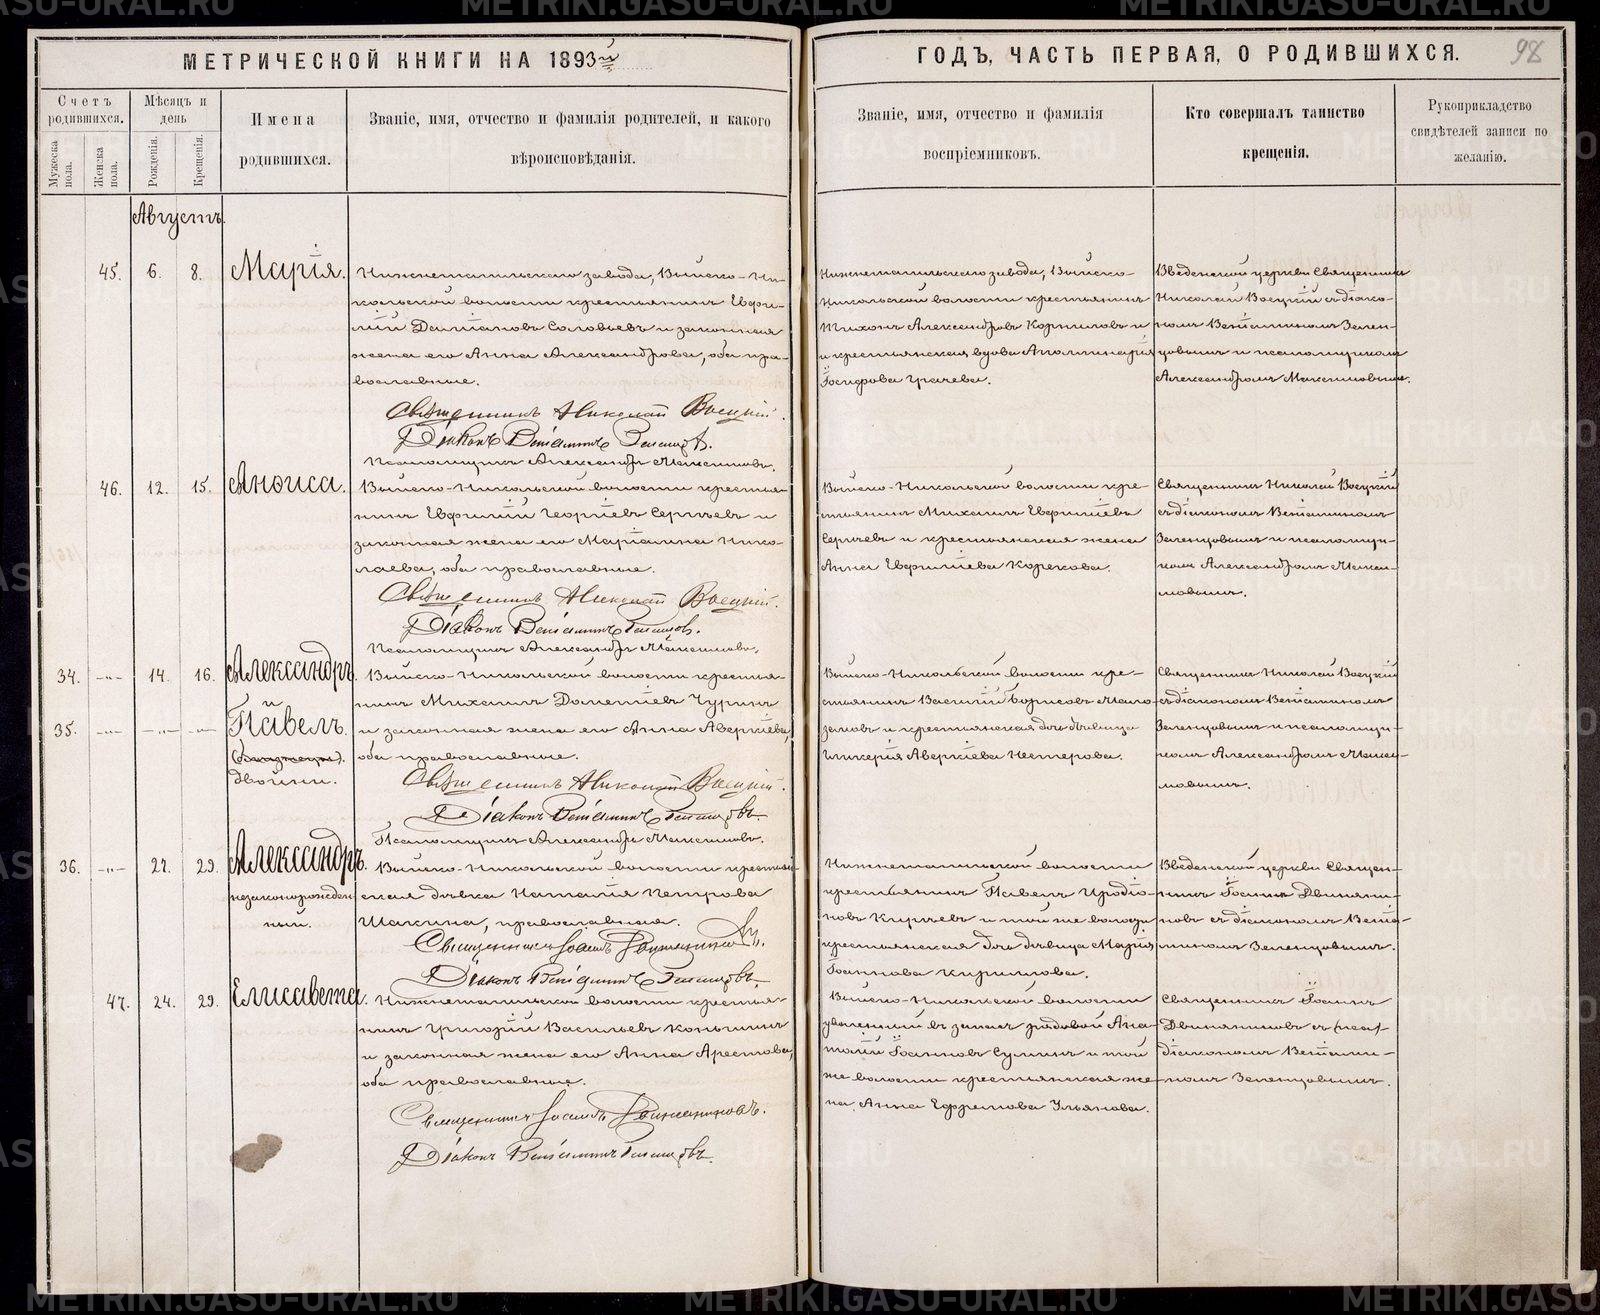 МЕТРИЧЕСКОЙ КНИГИ НА 1893й
ГОДЪ, ЧАСТЬ ПЕРВАЯ, О РОДИВШИХСЯ.
98
Счетъ родившихся.
Мужеска пола.
Женска пола.
Мѣсяцъ и день
Рожденія.
Крещенія.
Имена
родившихся.
Званіе, имя, отчество и фамилія родителей, и какого
вѣроисповѣданія.
Званіе, имя, отчество и фамилія
воспріемниковъ.
Кто совершалъ таинство
крещенія.
Рукоприкладство
свидѣтелей записи по
желанію.
Августъ.
45. 6. 8. Марія.
Нижнетагильскаго завода, Выйско-Ни-
кольской волости крестьянинъ Евфи-
мій Даміановъ Соловьевъ и законная
жена его Анна Александрова, оба пра-
вославные.
Священникъ Николай Восцкій.
Діаконъ Веніаминъ Зеленцовъ.
Псаломщикъ Александръ Максимовъ.
Нижнетагильскаго завода, Выйско-
Никольской волости крестьянинъ
Тихонъ Александровъ Корниловъ и
и крестьянская вдова Аполлинарія
Іосифова Грачева.
Введенской церкви Священникъ
Николай Восцкій съ діако-
номъ Веніаминомъ Зелен-
цовымъ и псаломщикомъ
Александромъ Максимовымъ.
46. 12. 15. Анѳиса.
Выйско-Никольской волости крестья-
нинъ Евфимій Георгіевъ Сергѣевъ и
законная жена его Маріанна Нико-
лаева, оба православные.
Священникъ Николай Восцкій.
Діаконъ Веніаминъ Зеленцовъ.
Псаломщикъ Александръ Максимовъ.
Выйско-Никольской волости кре-
стьянинъ Михаилъ Евфиміевъ
Сергѣевъ и крестьянская жена
Анна Евфиміева Корекова.
Священникъ Николай Восцкій
съ діакономъ Веніаминомъ
Зеленцовымъ и псаломщи-
комъ Александромъ Макси-
мовымъ.
34. -"- 14. 16. Александръ
и
35. -"- -"- -"- Павелъ.
(близнецы).
двойни.
Выйско-Никольской волости крестья-
нинъ Михаилъ Дометіевъ Чуринъ
и законная жена его Анна Аверкіева,
оба православные.
Священникъ Николай Восцкій.
Діаконъ Веніаминъ Зеленцовъ.
Псаломщикъ Александръ Максимовъ.
Выйско-Никольской волости кре-
стьянинъ Василій Борисовъ Мамо-
замовъ и крестьянская дочь дѣвица
Гликерія Аверкіева Нестерова.
Священникъ Николай Восцкій
съ діакономъ Веніаминомъ
Зеленцовымъ и псаломщи-
комъ Александромъ Макси-
мовымъ.
36. -"- 22. 29. Александръ.
незаконорожден
ный.
Выйско-Никольской волости крестьян-
ская дѣвка Наталія Петрова
Шакина, православная.
Священникъ Іоаннъ Двиняниновъ.
Діаконъ Веніаминъ Зеленцовъ.
Нижнетагильской волости
крестьянинъ Павелъ Иродіо-
новъ Киричевъ и той же волости
крестьянская дочь дѣвица Марія
Іоаннова Кириллова.
Введенской церкви Священ-
никъ Іоаннъ Двиняни-
новъ съ діакономъ Веніа-
миномъ Зеленцовымъ.
47. 24. 29. Елисавета.
Нижнетагильской волости крестья-
нинъ Григорій Васильевъ Коньшинъ
и законная жена его Анна Арестова,
оба православные.
Священникъ Іоаннъ Двиняниновъ.
Діаконъ Веніаминъ Зеленцовъ.
Выйско-Никольской волости
уволенный въ запасъ рядовой Ана-
толій Іоанновъ Сулинъ и той
же волости крестьянская же-
на Анна Ефремова Ульянова.
Священникъ Іоаннъ
Двиняниновъ съ
діакономъ Веніами-
номъ Зеленцовымъ.
METRIKI.GASO-URAL.RU